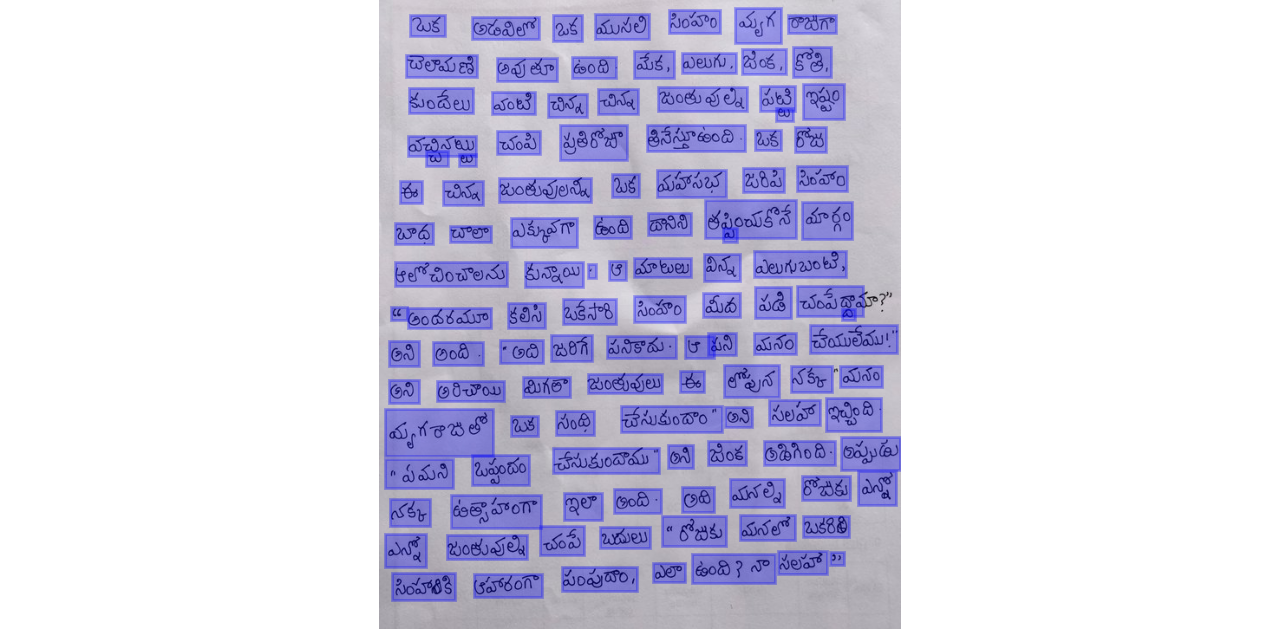 ఒక అడవిలో ఒక ముసలి సింహం మృగ రాజుగా
చెలామణి అవుతూ ఉంది. మేక, ఎలుగు, జింక, కోతి,
కుందేలు వంటి చిన్న చిన్న జంతువుల్ని పట్టి ఇష్టం
వచ్చినట్టు చంపి ప్రతిరోజూ తినేస్తూఉంది. ఒక రోజు
ఈ చిన్న జంతువులన్ని ఒక మహాసభ జరిపి సింహం
బాధ చాలా ఎక్కువగా ఉంది దానిని తప్పించుకొనే మార్గం
ఆలోచించాలను కున్నాయి. ఆ మాటలు విన్న ఎలుగుబంటి,
"అందరమూ కలిసి ఒకేసారి సింహం మీద పడి చంపేద్దామా?"
అని అంది. "అది జరిగే పనికాదు. ఆ పని మనం చేయలేము!"
అని అరిచాయి మిగతా జంతువులు ఈ లోపున నక్క "మనం
మృగరాజుతో ఒక సంధి చేసుకుందాం" అని సలహా ఇచ్చింది.
"ఏమని ఒప్పందం చేసుకుందాము" అని జింక అడిగింది. అప్పుడు
నక్క ఉత్సాహంగా ఇలా అంది. అది మనల్ని రోజుకు ఎన్నో
ఎన్నో జంతువుల్ని చంపే బదులు "రోజుకు మనలో ఒకరిని
సింహానికి ఆహారంగా పంపుదాం, ఎలా ఉంది? నా సలహా"